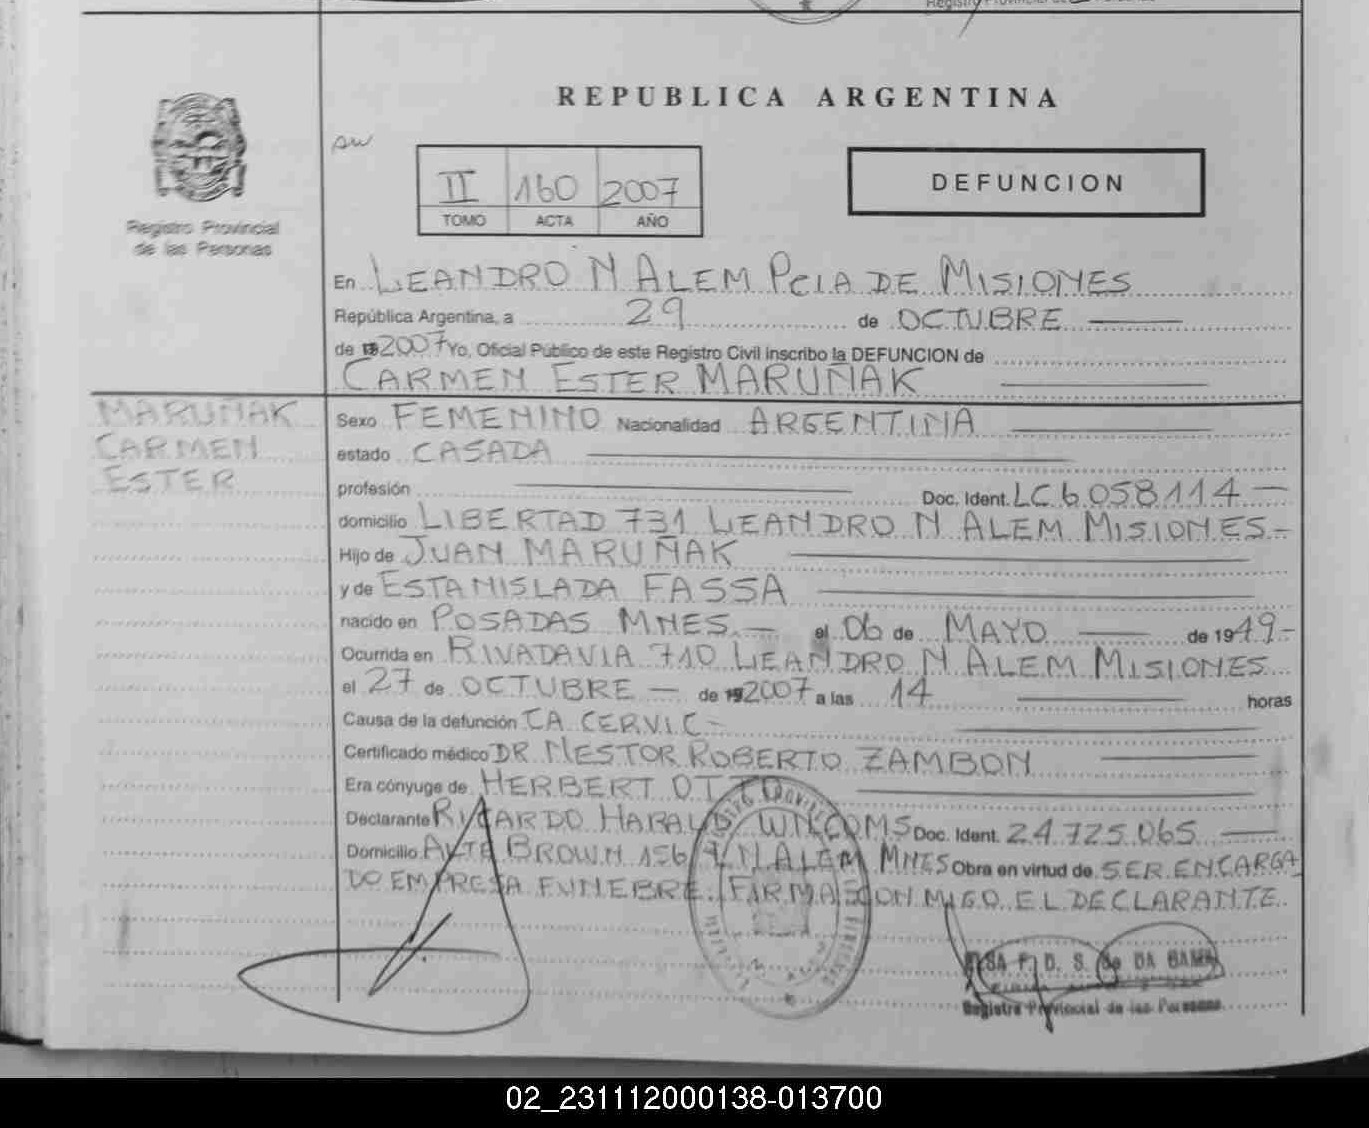 REPUBLICA ARGENTINA
Registro Provincial
de las Personas
II 160 2007
TOMO ACTA AÑO
DEFUNCION
En LEANDRO N ALEM PCIA DE MISIONES
República Argentina, a 29 de OCTUBRE
de 192007 Yo, Oficial Público de este Registro Civil inscribo la DEFUNCION de
CARMEN ESTER MARUÑAK
MARUÑAK
CARMEN
ESTER
Sexo FEMENINO Nacionalidad ARGENTINA
estado CASADA
profesión Doc. Ident. LC 6.058.114
domicilio LIBERTAD 731 LEANDRO N ALEM MISIONES
Hijo de JUAN MARUÑAK
y de ESTANISLADA FASSA
nacido en POSADAS MNES. el 06 de MAYO de 1949
Ocurrida en RIVADAVIA 710 LEANDRO N ALEM MISIONES
el 27 de OCTUBRE de 192007 a las 14 horas
Causa de la defunción CA CERVIC
Certificado médico DR NESTOR ROBERTO ZAMBON
Era cónyuge de HERBERT OTTO
Declarante RICARDO HARALD WILCOMS Doc. Ident. 24.725.065
Domicilio ALTE BROWN 156 L N ALEM MNES Obra en virtud de SER ENCARGA
DO EMPRESA FUNEBRE. FIRMA CON MIGO EL DECLARANTE.
DA GAMA
Registro Provincial de las Personas
02_231112000138-013700